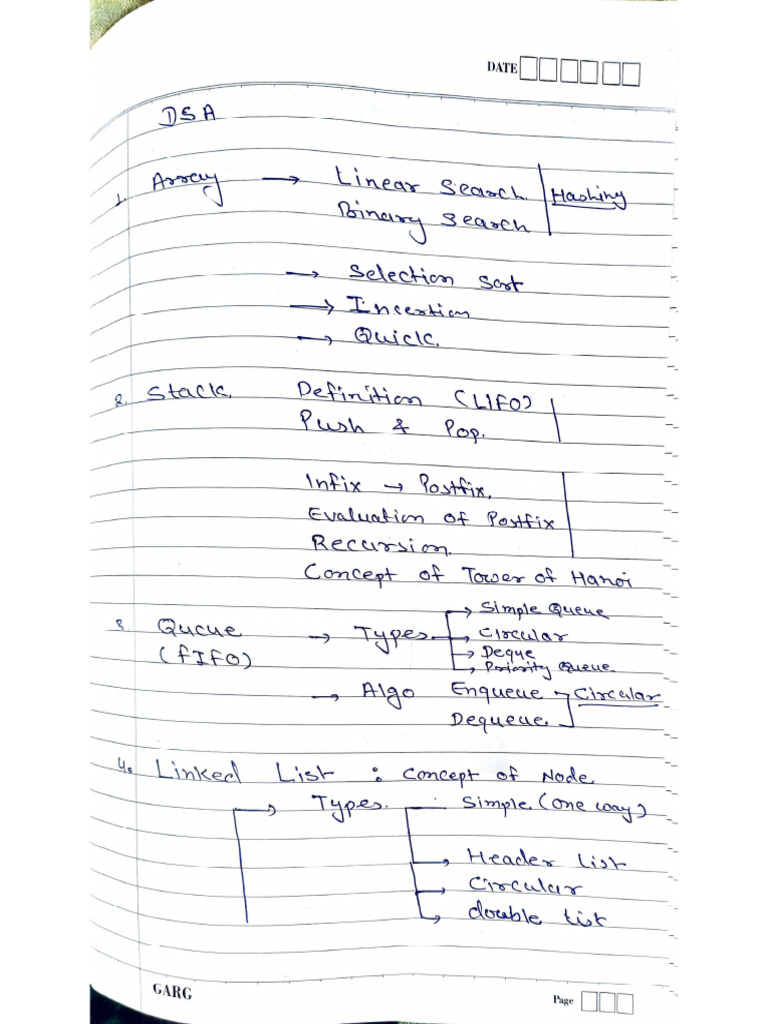 DATE
DSA
1. Array → Linear Search | Hashing
Binary Search
→ Selection Sort
→ Incertion
→ Quick.
2. Stack. Definition (LIFO)
Push & Pop.
Infix → Postfix.
Evaluation of Postfix
Recursion.
Concept of Tower of Hanoi
3 Queue → Types → Simple Queue
(FIFO) → Circular
→ Deque
→ Priority Queue
→ Algo Enqueue Circular
Dequeue.
4. Linked List : Concept of Node
→ Types. Simple (one way)
→ Header List
→ Circular
→ double list
GARG
Page